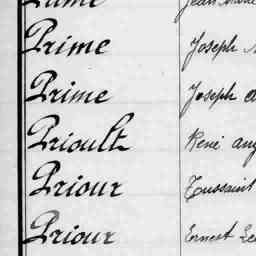 Prime Joseph
Prime Joseph
Prioult René
Priour Toussaint
Priour Ernest